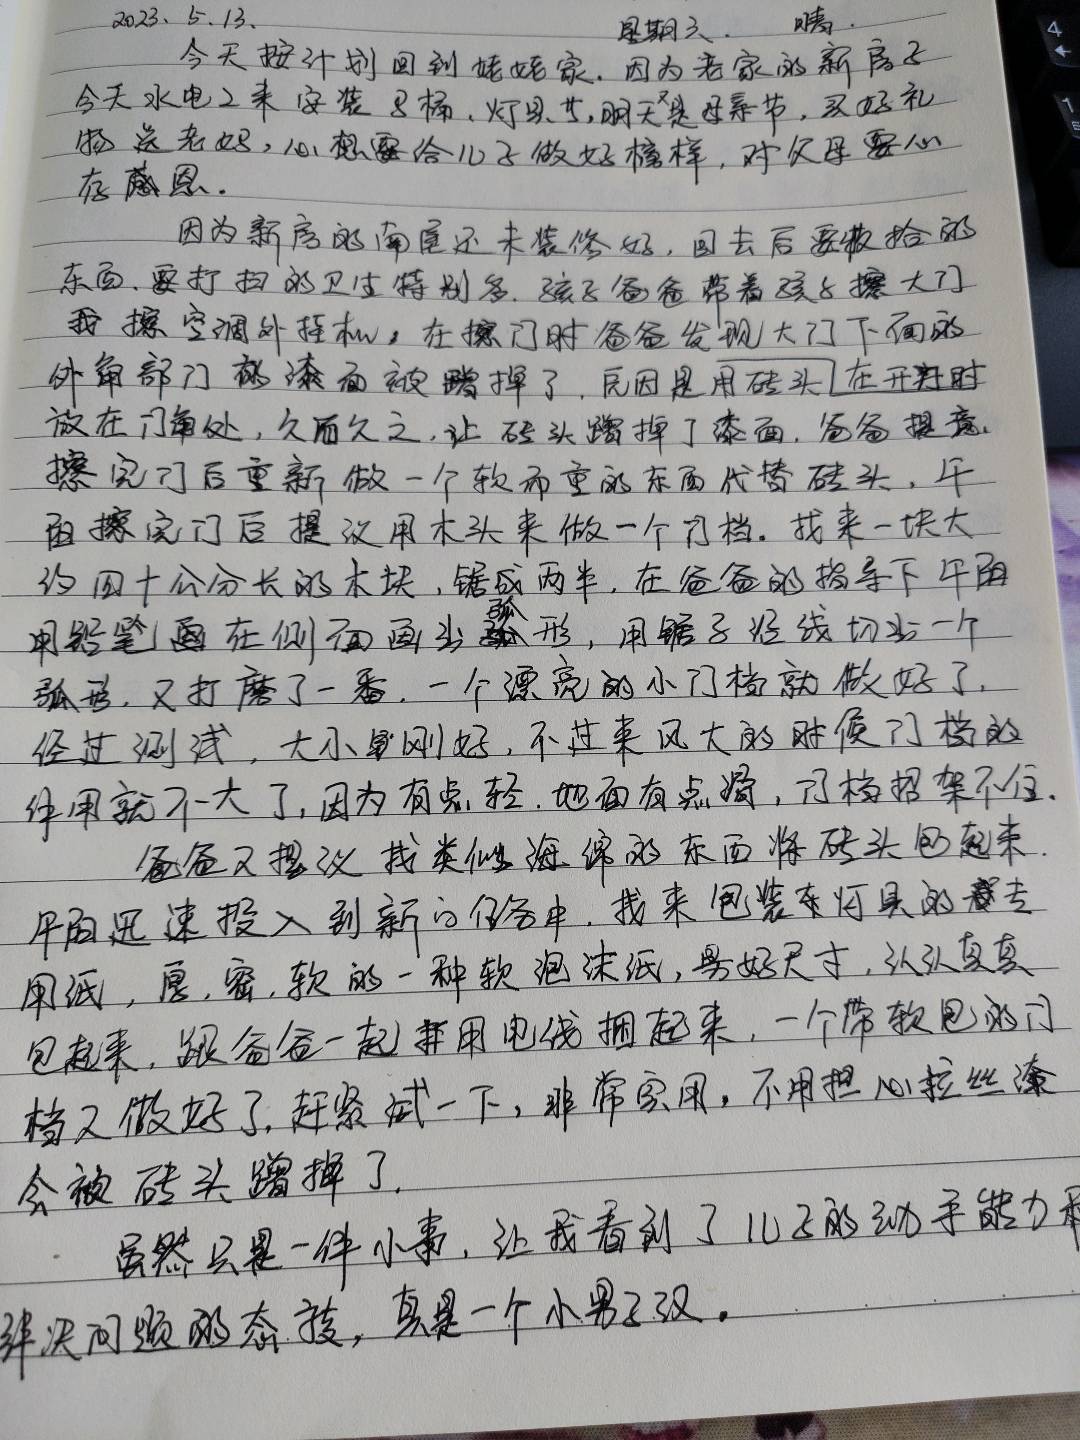 2023.5.13. 星期六. 晴.
今天按计划回到姥姥家.因为老家的新房子
今天水电工来安装马桶、灯具等,明天又是母亲节,买好礼
物送老妈,心想要给儿子做好榜样,对父母要心
存感恩.
因为新房的南屋还未装修好,回去后要收拾的
东西、要打扫的卫生特别多.孩子爸爸带着孩子擦大门
我擦空调外挂机。在擦门时爸爸发现大门下面的
外角部门的漆面被蹭掉了.原因是用砖头在开时
放在门角处,久而久之,让砖头蹭掉了漆面.爸爸提意.
擦完门后重新做一个软而重的东西代替砖头.午
阳擦完门后提议用木头来做一个门档。找来一块大
约四十公分长的木块,锯成两半.在爸爸的指导下午阳
用铅笔在侧面画出弧形,用锯子沿线切出一个
弧形.又打磨了一番.一个漂亮的小门档就做好了.
经过测试,大小刚好,不过来风大的时候门档的
作用就不大了,因为有点轻.地面有点滑,门档招架不住.
爸爸又提议找类似海绵的东西将砖头包起来.
午阳迅速投入到新的任务中.找来包装灯具的专
用纸,厚、密、软的一种软泡沫纸,量好尺寸.认认真真
包起来,跟爸爸一起并用电线捆起来,一个带软包的门
档又做好了.赶紧试一下,非常实用,不用担心拉丝漆
会被砖头蹭掉了.
虽然只是一件小事,让我看到了儿子的动手能力和
解决问题的态度,真是一个小男子汉。